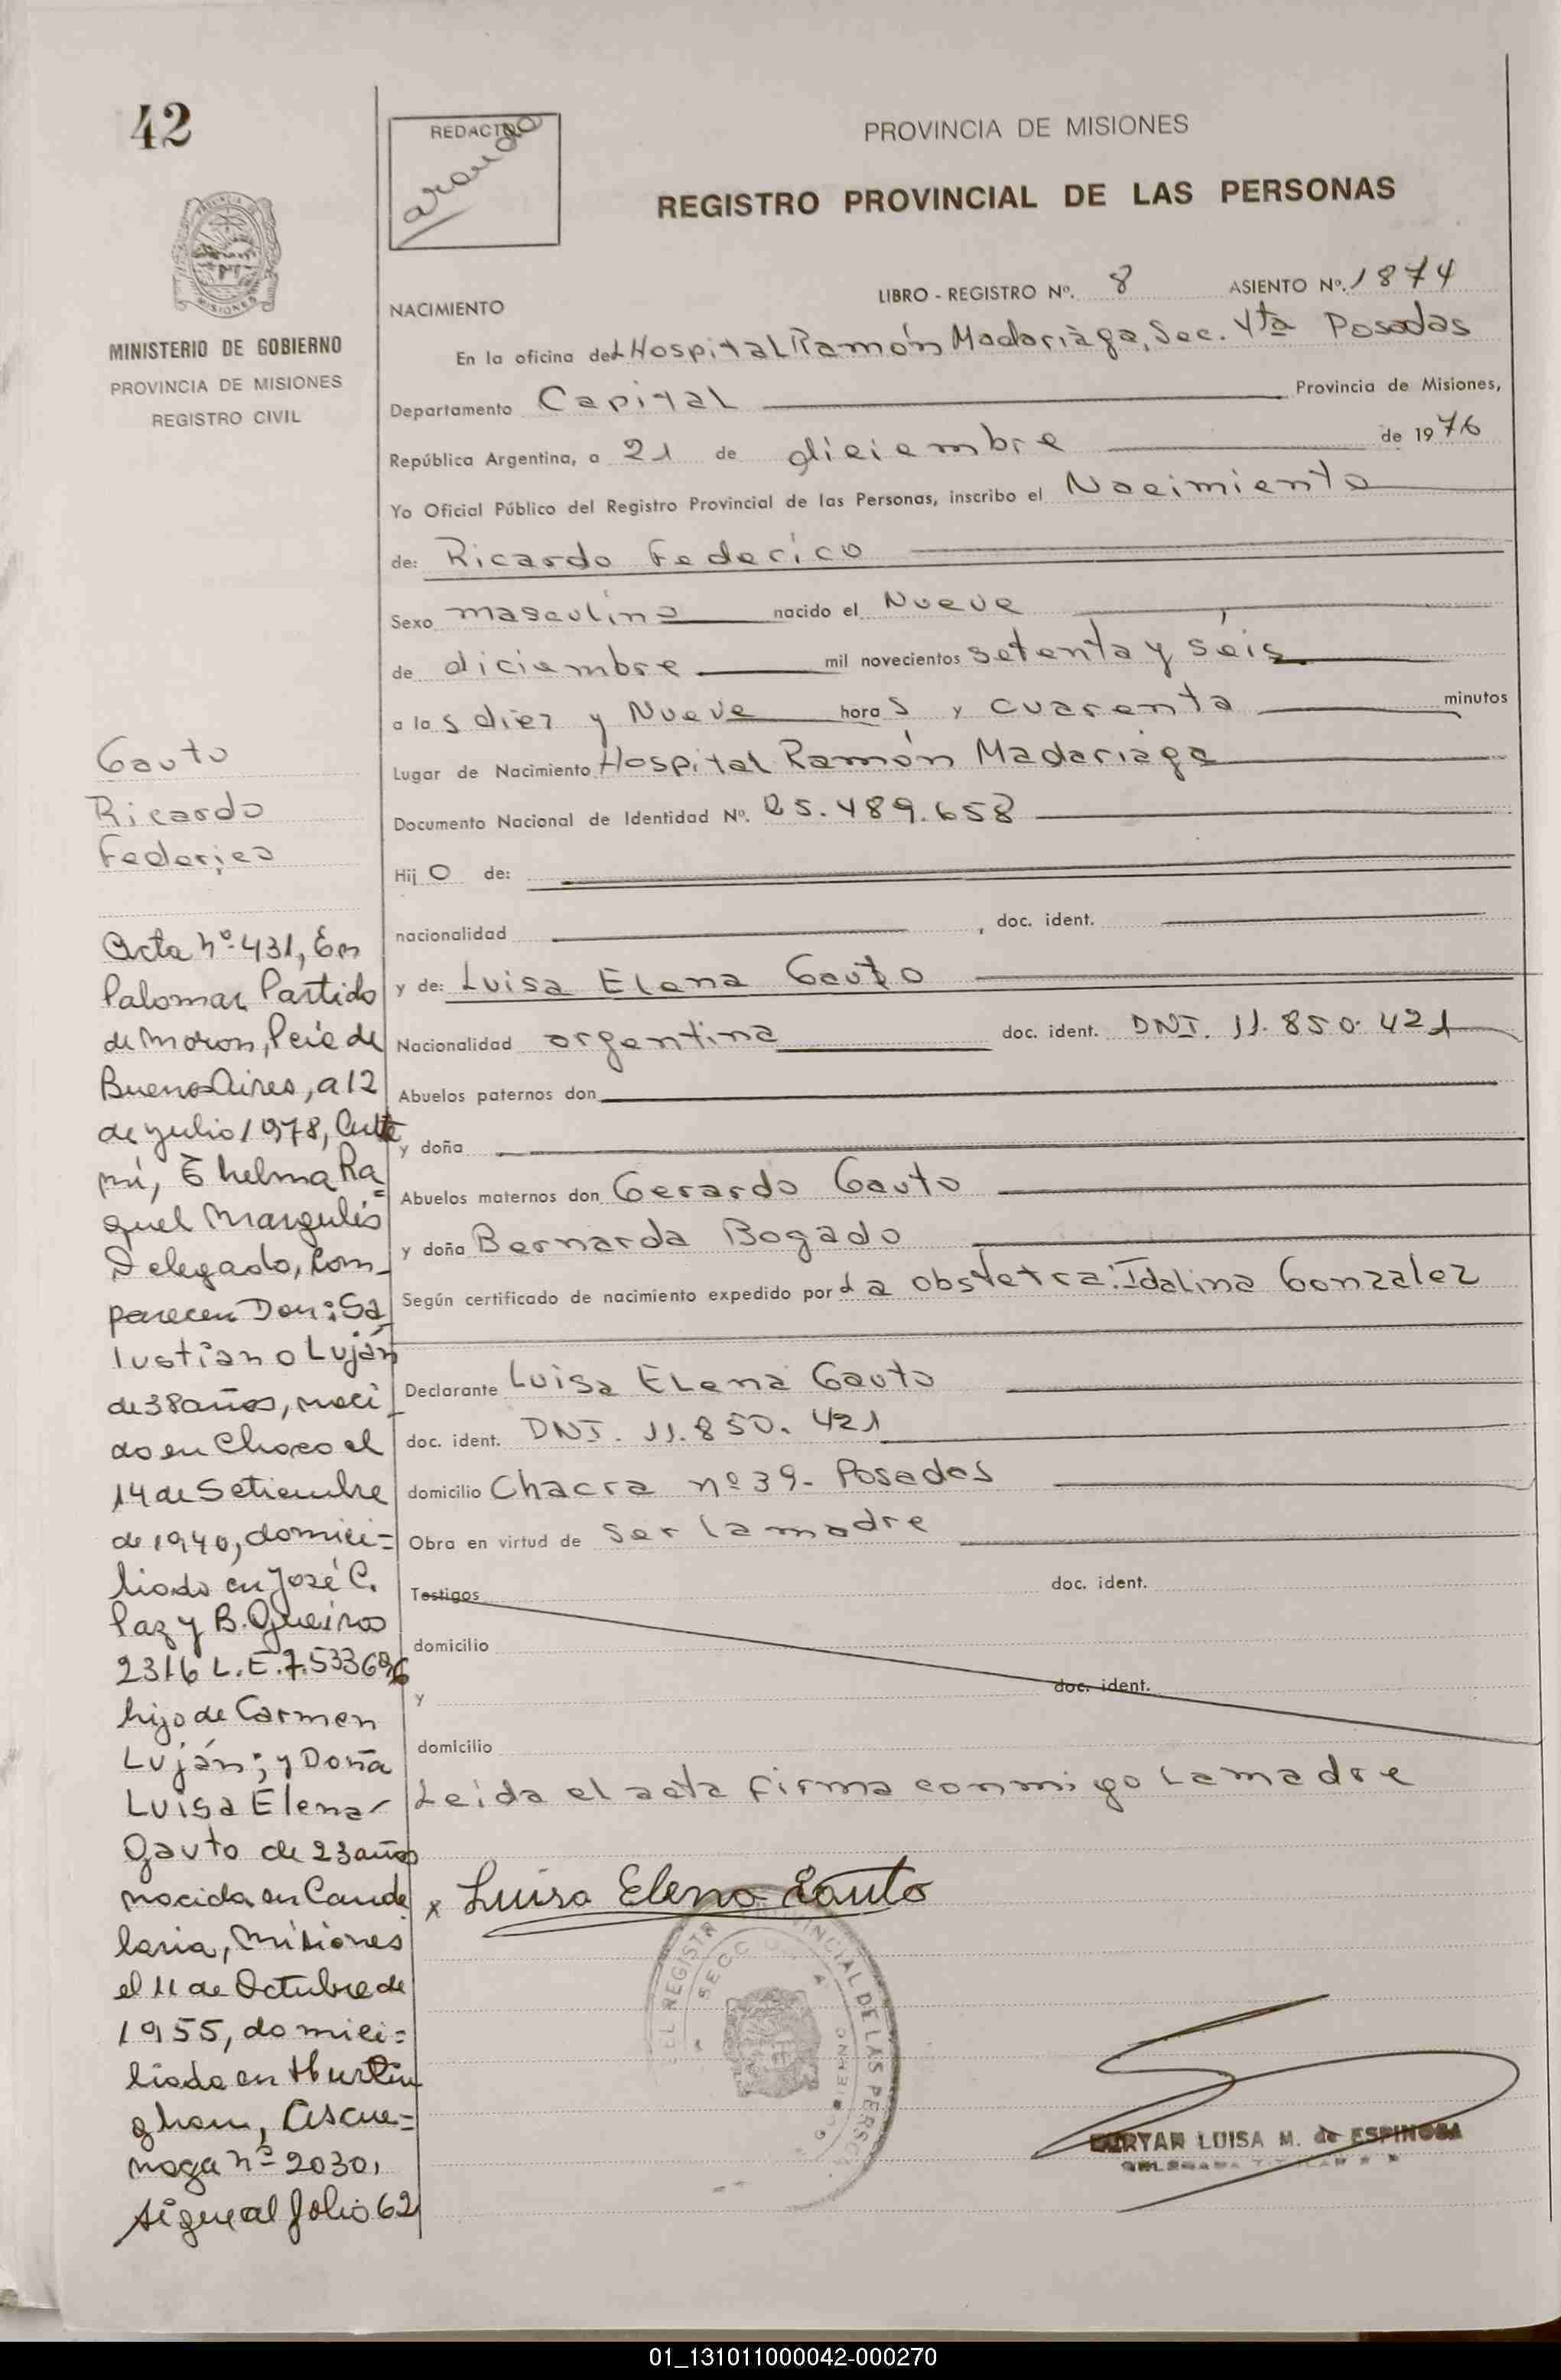 42
REDACTO
PROVINCIA DE MISIONES
REGISTRO PROVINCIAL DE LAS PERSONAS
MISIONES
MINISTERIO DE GOBIERNO
PROVINCIA DE MISIONES
REGISTRO CIVIL
LIBRO - REGISTRO Nº. 8 ASIENTO Nº. 1874
NACIMIENTO
En la oficina del Hospital Ramón Madariàga, Sec. 4ta Posadas
Departamento Capital Provincia de Misiones,
República Argentina, a 21 de diciembre de 1976
Yo Oficial Público del Registro Provincial de las Personas, inscribo el Nacimiento
de: Ricardo Federico
Sexo masculino nacido el Nueve
de diciembre mil novecientos setenta y séis
a las diez y Nueve horas y cuarenta minutos
Lugar de Nacimiento Hospital Ramón Madariàga
Documento Nacional de Identidad Nº. 25.489.658
Hijo de:
nacionalidad , doc. ident.
y de: Luisa Elena Gauto
Nacionalidad argentina doc. ident. DNI. 11.850.421
Abuelos paternos don
y doña
Abuelos maternos don Gerardo Gauto
y doña Bernarda Bogado
Según certificado de nacimiento expedido por La obstetra: Idalina Gonzalez
Declarante Luisa Elena Gauto
doc. ident. DNI. 11.850.421
domicilio Chacra nº 39- Posadas
Obra en virtud de ser la madre
Testigos doc. ident.
domicilio
y doc. ident.
domicilio
Leida el acta firma conmigo La madre
x Luisa Elena Gauto
Gauto
Ricardo
Federico
Acta nº 431, En
Palomar Partido
de Moron, Pcia de
Buenos Aires, a 12
de julio 1978, Ante
mí, Thelma Ra=
quel Margulis
Delegado, com-
parecen Don: Sa
lustiano Luján
de 38 años, naci-
do en Chaco el
14 de Setiembre
de 1940, domici=
liado en José C.
Paz y B.
2316 L.E.
hijo de Carmen
Luján; y Doña
Luisa Elena
Gauto de 23 años
nacida en Cande
laria, Misiones
el 11 de Octubre de
1955, domici=
liada en Hurlin
gham,
nº 2030,
sigue al folio 62
REGISTRO PROVINCIAL DE LAS PERSO
LUISA M. de ESPINOSA
01_131011000042-000270